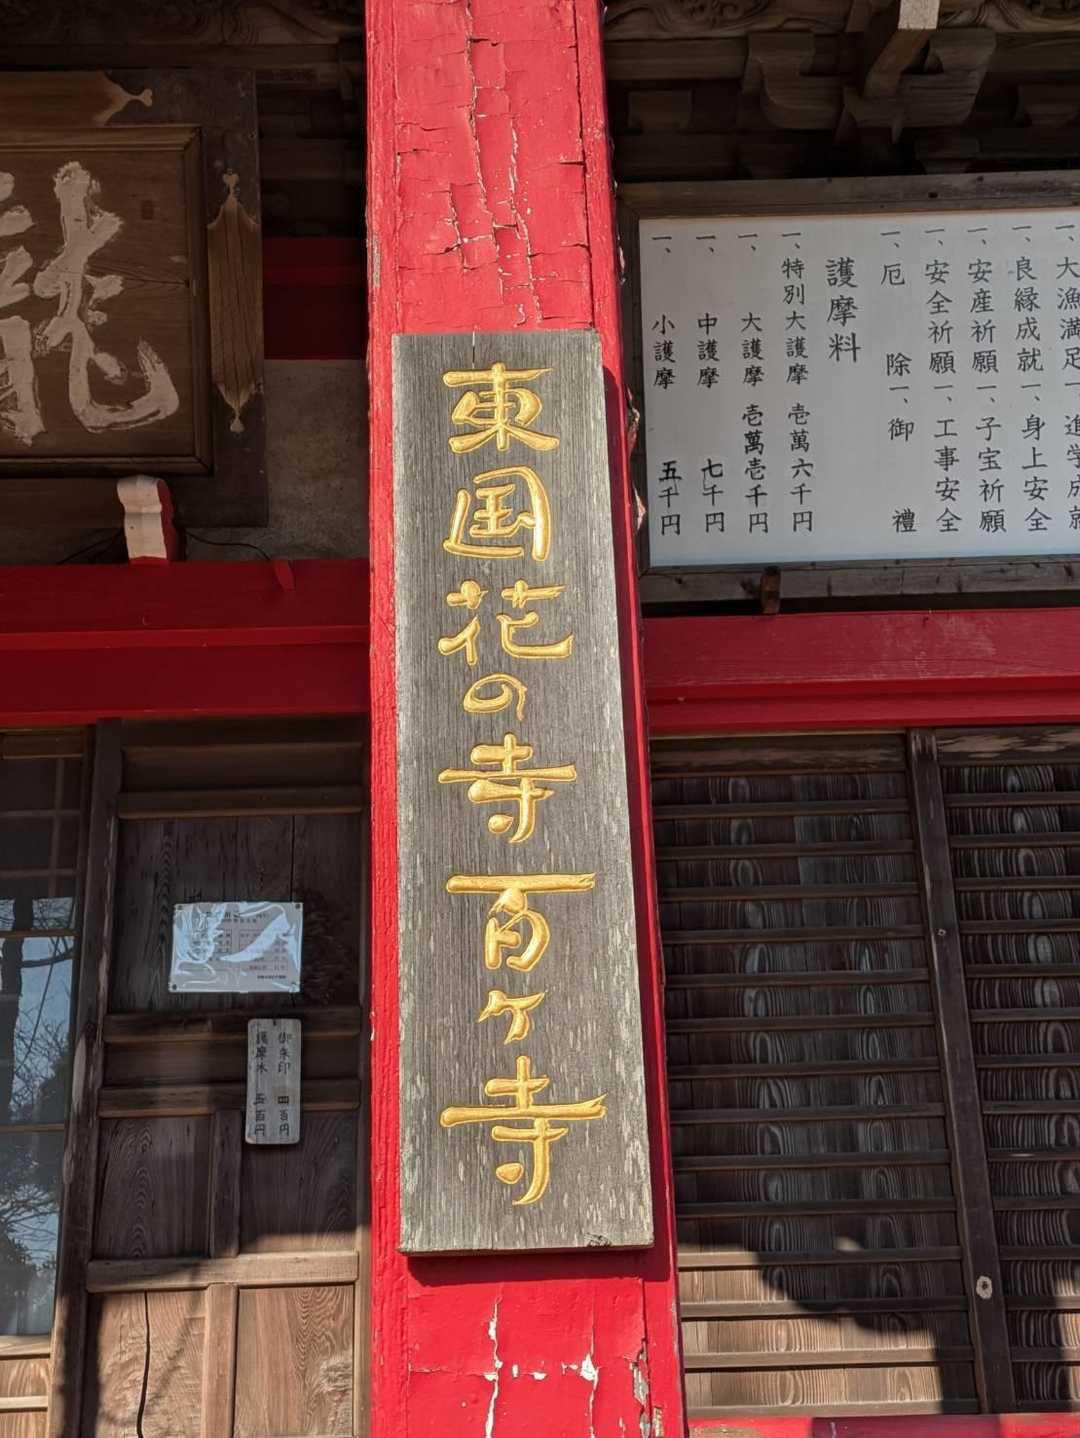 東国花の寺百ヶ寺
一、大漁満足
一、進学成就
一、良縁成就
一、身上安全
一、安産祈願
一、子宝祈願
一、安全祈願
一、工事安全
一、厄除
一、御禮
護摩料
一、特別大護摩 壱萬六千円
一、大護摩 壱萬壱千円
一、中護摩 七千円
一、小護摩 五千円
御朱印 四百円
護摩木 五百円